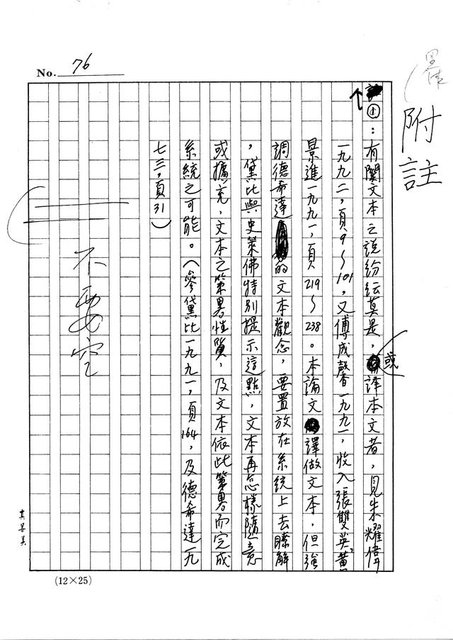 No. 76
附註
①：有關文本之說紛紜莫是，或譯本文者，見朱耀偉
一九九二，頁9～101，又傅成馨一九九一，收入張雙英、黃
景進一九九一，頁219～238。本論文譯做文本，但強
調德希達的文本觀念，要置放在系統上去瞭解
，黛比與史萊佛特別提示這點，文本再怎樣隨意
或擴充，文本之策畧性質，及文本依此策畧而完成
系統之可能。（參黛比一九九一，頁164，及德希達一九
七三，頁31）
不要空
(12×25)